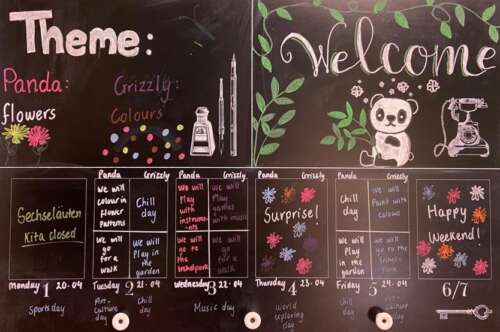 Theme:
Panda:
Grizzly:
flowers
Colours
Welcome
Panda Grizzly
Panda Grizzly
Panda Grizzly
Panda Grizzly
Sechseläuten
Kita closed
we will
colour in
flower
patterns
Chill
day
we will
Play
with
instrum-
ents
we will
Play
games
with music
Surprise!
Chill
day
we will
Paint with
colours
Happy
Weekend!
we will
go
for a
walk
we will
Play in
the
garden
we will
go to
the
we will
go
for a
walk
we will
Play
in the
garden
we will
go
for a
walk
Monday 1 20.04
Tuesday 2 21.04
Wednesday 3 22.04
Thursday 4 23.04
Friday 5 24.04
6/7
Sports day
Art-
culture
day
Chill
day
Music day
World
exploring
day
Chill
day
Art-
culture
day